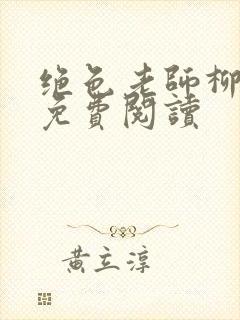 绝色老师柳
免費閱讀
黄立淳